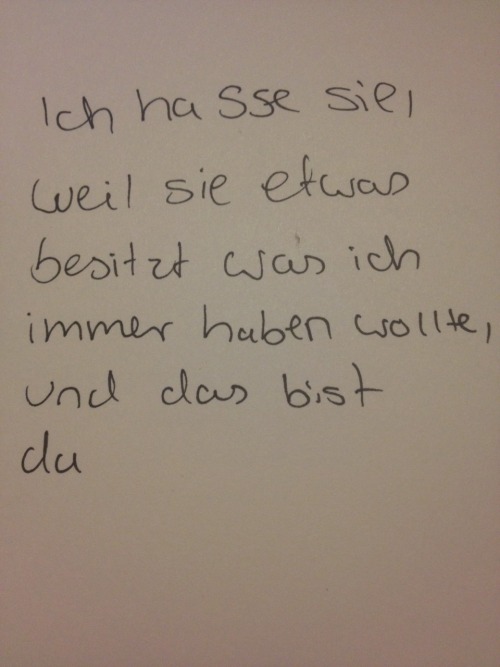 Ich hasse sie,
weil sie etwas
besitzt was ich
immer haben wollte,
und das bist
du